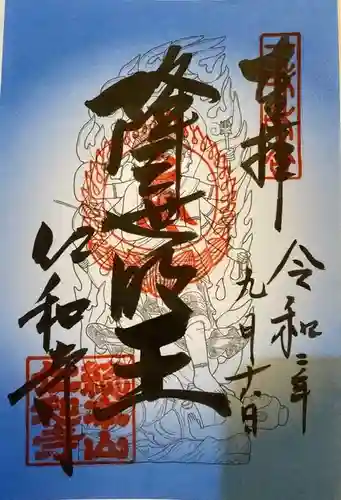 奉拝
令和二年
九月十六日
降三世明王
仁和寺
総本山
仁和寺